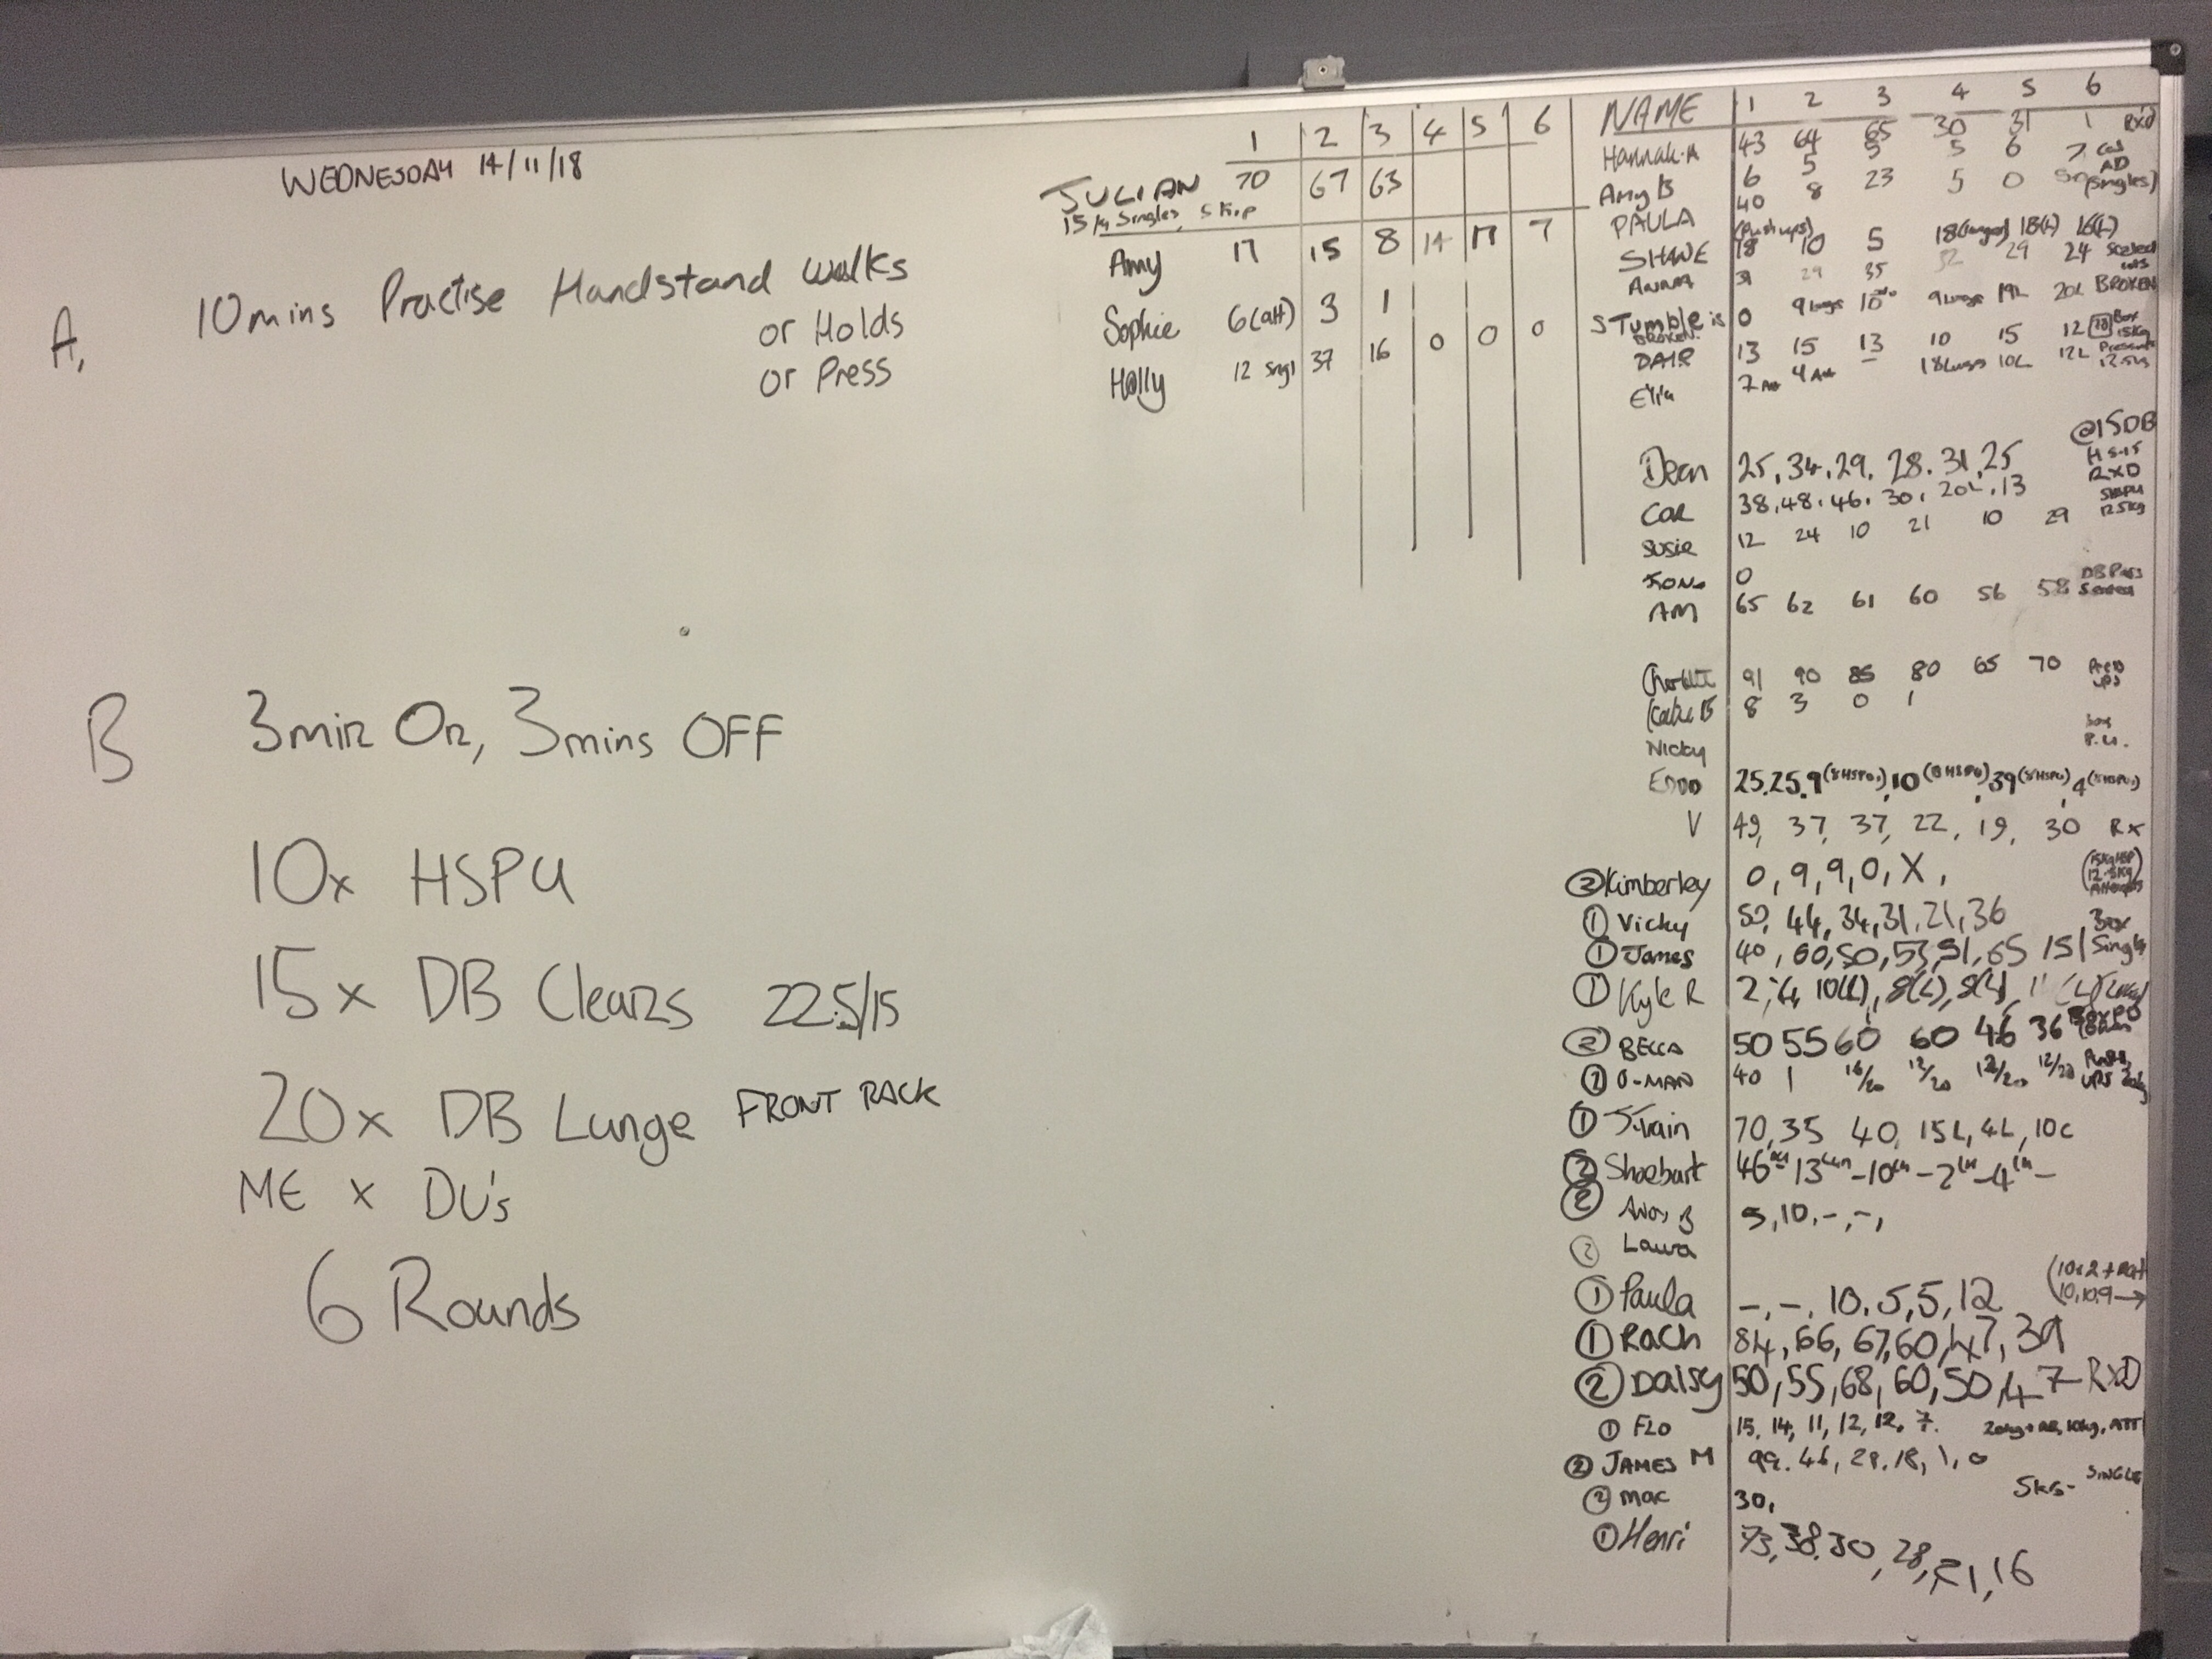 WEDNESDAY 14/11/18
A, 10mins Practise Handstand Walks
or Holds
or Press
B 3min On, 3mins OFF
10x HSPU
15x DB Cleans 22.5/15
20x DB Lunge FRONT RACK
ME x DU's
6 Rounds
1 2 3 4 5 6
JULIAN 70 67 63
15kg Singles, Skip
Amy 17 15 8 14 17 7
Sophie 6(att) 3 1
Holly 12 sngl 37 16 0 0 0
NAME 1 2 3 4 5 6
Hannah.A 43 64 65 30 31 1 RXD
Amy B 6 5 5 5 6 7
PAULA 40 8 23 5 0 (Singles)
(push ups)
SHANE 18 10 5 18(lunges) 18(L) 16(L)
ANNA 31 29 35 32 29 24 Scaled
STumble is 0 9 Lungs 10 9 Lungs 19L 20L BROKEN
BROKEN
13 15 13 10 15 12 Box
7 Att 4 Att – 18 Lungs 10L 12L 12.5kg
@15DB
Dean 25, 34, 29, 28, 31, 25
RXD
38, 48, 46, 30, 20L, 13
Susie 12 24 10 21 10 29 12.5kg
0
AM 65 62 61 60 56 58
91 90 85 80 65 70
8 3 0 1
Nicky
25, 25, 9 (8HSPU), 10 (8HSPU), 39 (8HSPU), 4
V 49, 37, 37, 22, 19, 30 Rx
② Kimberley 0, 9, 9, 0, X,
① Vicky 50, 44, 34, 31, 21, 36 Box
① James 40, 60, 50, 53, 51, 65 15 | Singls
① Kyle R 2, 4, 10(L), 8(L), 8(L), 11 (L)
② BECCA 50 55 60 60 46 36
② O-MAN 40 1 16/20 12/20 12/20 12/20
① J.Train 70, 35 40, 15L, 4L, 10c
② Shoebart 46 – 13 – 10 – 2 – 4 –
② 5, 10, -, -,
② Laura
① Paula –, –, 10, 5, 5, 12
10, 10, 9 →
① Rach 84, 66, 67, 60, 47, 39
② Daisy 50, 55, 68, 60, 50, 47 RXD
① FLO 15, 14, 11, 12, 12, 7. 10kg, ATT
② JAMES M 99, 46, 29, 18, 1, 0
② mac 30, 5kgs - SINGLE
① Henri 73, 38, 30, 28, 21, 16